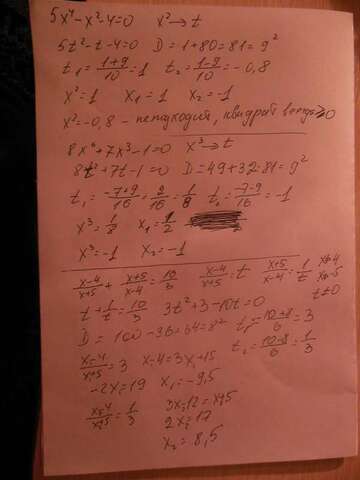 5x⁴-x²-4=0 x²→t
5t²-t-4=0 D=1+80=81=9²
t₁=(1+9)/10=1 t₂=(1-9)/10=-0,8
x²=1 x₁=1 x₂=-1
x²=-0,8 - неподходит, квадрат всегда ≥0
8x⁶+7x³-1=0 x³→t
8t²+7t-1=0 D=49+32=81=9²
t₁=(-7+9)/16=2/16=1/8 t₂=(-7-9)/16=-1
x³=1/8 x₁=1/2
x³=-1 x₂=-1
(x-4)/(x+5)+(x+5)/(x-4)=10/3 (x-4)/(x+5)=t (x+5)/(x-4)=1/t x≠4
x≠-5
t+1/t=10/3 3t²+3-10t=0 t≠0
D=100-36=64=8² t₁=(10+8)/6=3
(x-4)/(x+5)=3 x-4=3x+15 t₂=(10-8)/6=1/3
-2x=19 x₁=-9,5
(x-4)/(x+5)=1/3 3x-12=x+5
2x=17
x₂=8,5